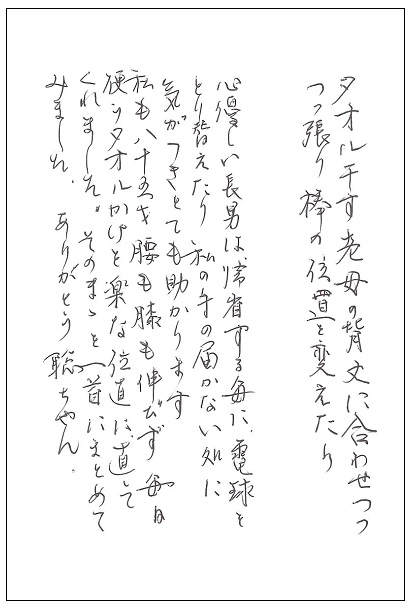 タオル干す老母の背丈に合わせつつ
つっ張り棒の位置を変えたり
心優しい長男は帰省する毎に、電球を
とり替えたり 私の手の届かない処に
気がつきとても助かります
私も八十五才 腰も膝も伸びず 毎日
使うタオルかけを楽な位置に直して
くれました。そのまゝを一首にまとめて
みました。ありがとう 聡ちゃん。